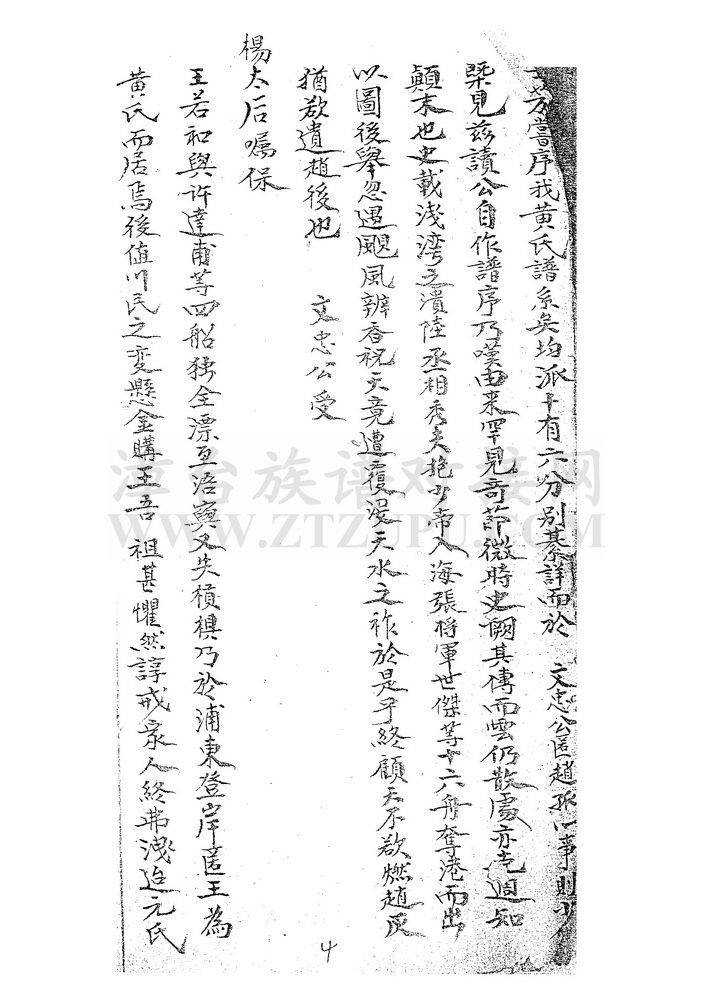 芳嘗序我黃氏譜系矣均派十有六分別綦詳而於 文忠公匿趙孤一事則少
槩見茲讀公自作譜序乃嘆由来罕見奇節微時史闕其傳而雲仍散處亦克週知
顛末也史載浅湾之潰陸丞相秀夫抱少帝入海張将軍世傑等十六舟奪港而出
以圖後舉忽遇颶風辨香祝天竟遭覆沒天水之祚於是乎終顧天不欲燃趙灰
猶欲遺趙後也 文忠公受
楊太后嘱保
王若和與許達甫等四船獨全漂至浯嶼又失楨楫乃於浦東登岸匿王為
黃氏而居焉後值川民之変懸金購王吾 祖甚懼然諄戒家人終弗洩迨元氏
4
漳台族谱对接网
WWW.ZTZUPU.COM